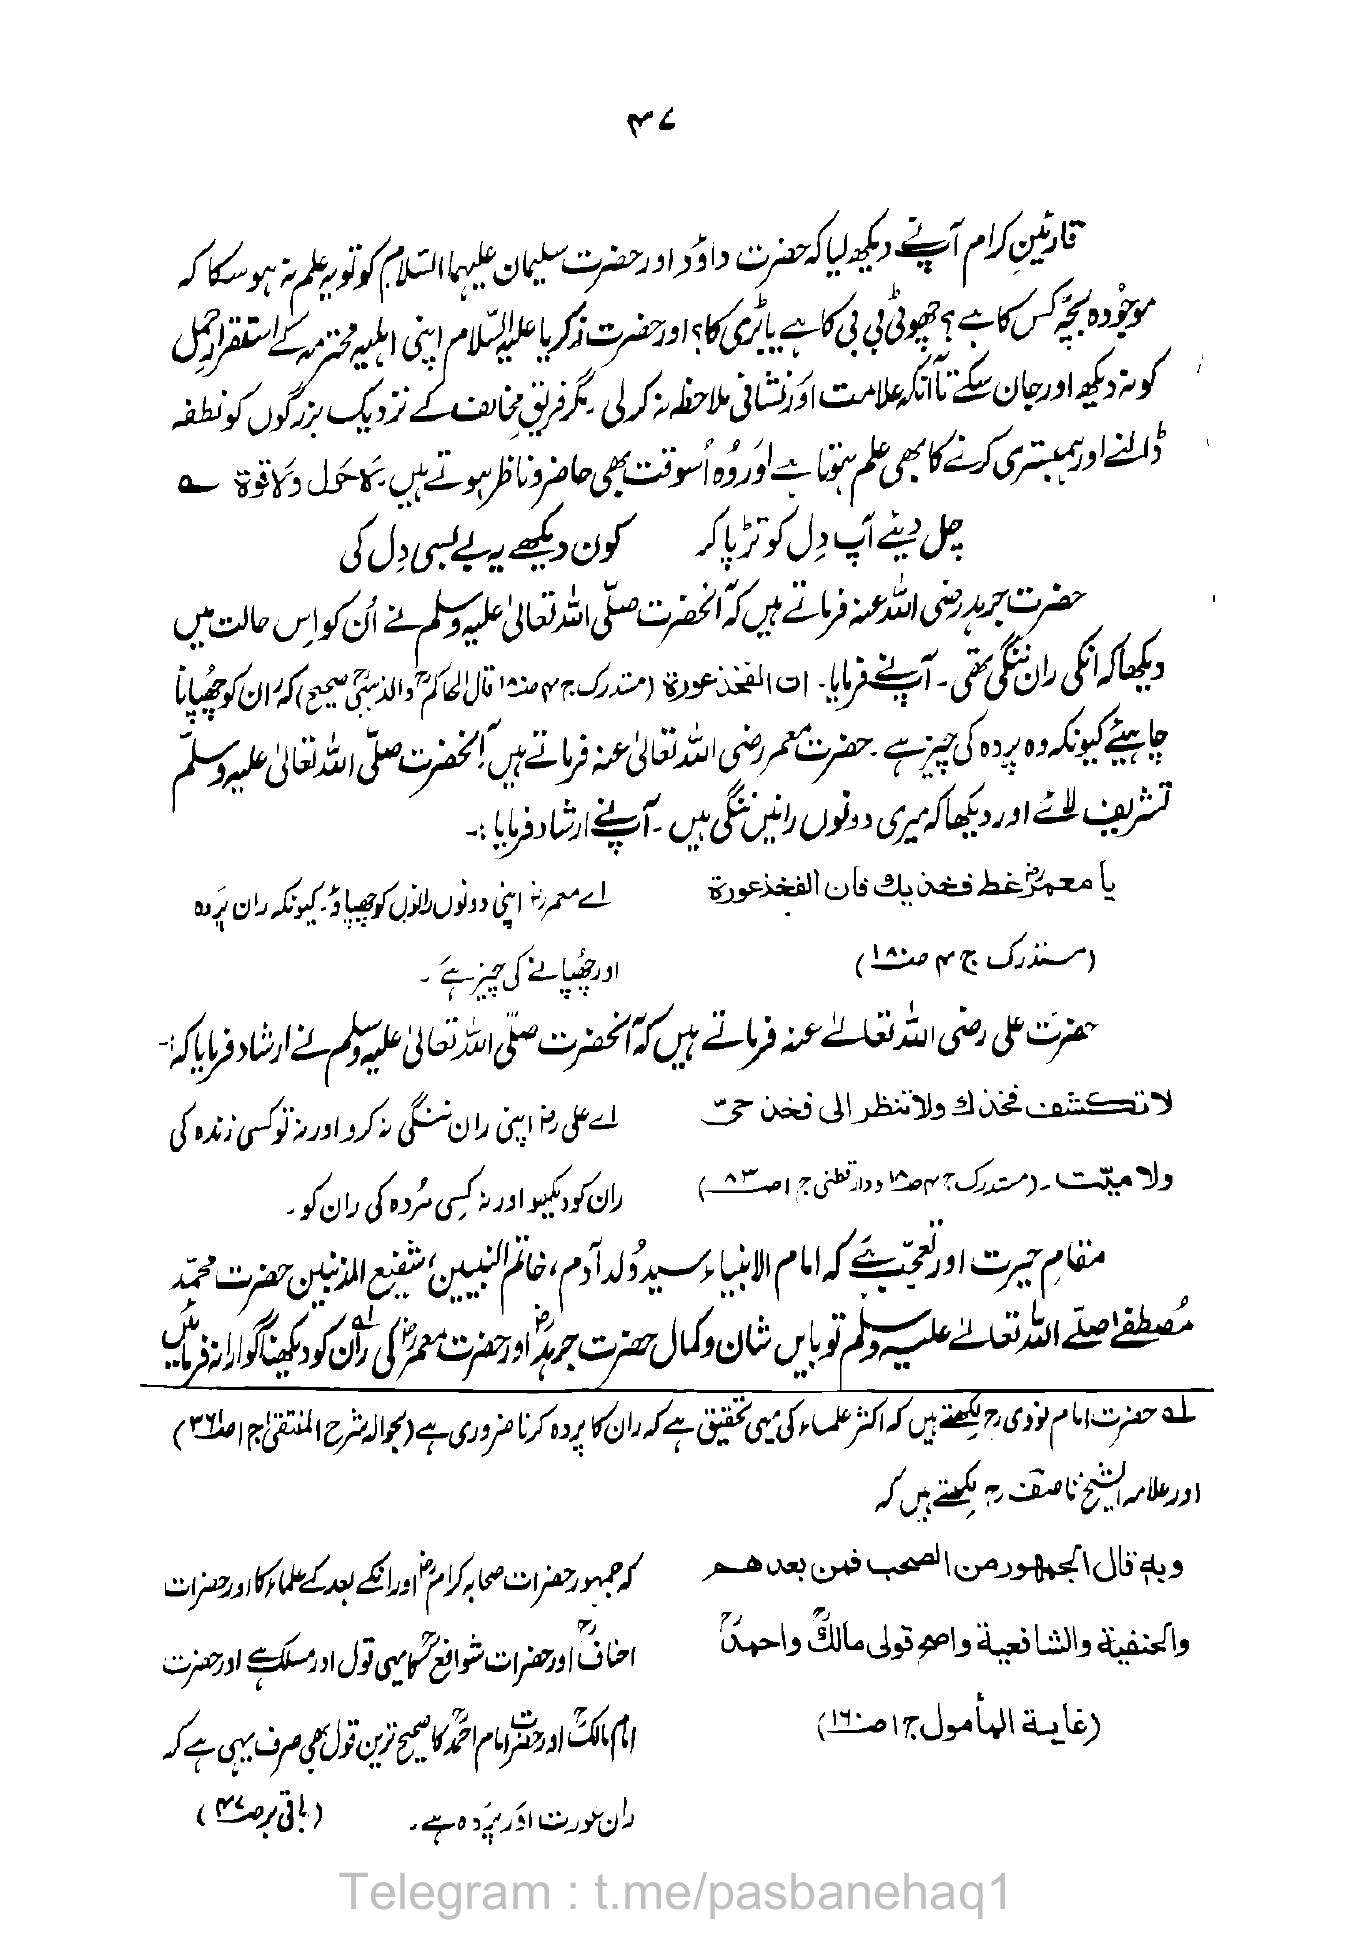 ۴۷
قارئینِ کرام آپنے دیکھ لیا کہ حضرت داؤد اور حضرت سلیمان علیہما السّلام کو تو یہ علم نہ ہو سکا کہ
موجُودہ بچّہ کس کا ہے؟ چھوٹی بی بی کا ہے یا بڑی کا؟ اور حضرت زکریا علیہ السّلام اپنی اہلیہ محترمہ کے استقرارِ حمل
کو نہ دیکھ اور جان سکے تا آنکہ علامت اور نشانی ملاحظہ نہ کر لی ۔ مگر فریقِ مخالف کے نزدیک بزرگوں کو نطفہ
ڈالنے اور ہمبستری کرنے کا بھی علم ہوتا ہے اور وُہ اُسوقت بھی حاضر و ناظر ہوتے ہیں ۔ لاحَول ولا قوۃ ؎
چل دیئے آپ دِل کو تڑپا کر کون دیکھے یہ بے بسی دِل کی
حضرت جرہد رضی اللہ عنہ فرماتے ہیں کہ آنحضرت صلّی اللہ تعالیٰ علیہ وسلم نے اُن کو اِس حالت میں
دیکھا کہ انکی ران ننگی تھی ۔ آپنے فرمایا ۔ ان الفخذ عورۃ (مستدرک ج ۴ صـ۱۸۰ قال الحاکمؒ والذہبیؒ صحیح) کہ ران کو چھُپانا
چاہیئے کیونکہ وہ پردہ کی چیز ہے ۔ حضرت معمر رضی اللہ تعالیٰ عنہ فرماتے ہیں آنحضرت صلّی اللہ تعالیٰ علیہ وسلّم
تشریف لائے اور دیکھا کہ میری دونوں رانیں ننگی ہیں ۔ آپنے ارشاد فرمایا :۔
یا معمرؓ غط فخذیك فان الفخذ عورۃ اے معمرؓ اپنی دونوں رانوں کو چھپاؤ ۔ کیونکہ ران پَردہ
(مستدرک ج ۴ صـ۱۸۰) اور چھُپانے کی چیز ہے ۔
حضرت علی رضی اللہ تعالےٰ عنہ فرماتے ہیں کہ آنحضرت صلّی اللہ تعالیٰ علیہ وسلم نے ارشاد فرمایا کہ :۔
لا تکشف فخذك ولا تنظر الی فخذ حیّ اے علیؓ اپنی ران ننگی نہ کرو اور نہ تو کسی زندہ کی
ولا میّت ۔ (مستدرک ج ۴ صـ۱۸۰ و دارقطنی ج ۱ صـ۸۳) ران کو دیکھیو اور نہ کسِی مُردہ کی ران کو ۔
مقامِ حیرت اور تعجّب ہَے کہ امام الانبیاء سید وُلد آدم ، خاتَم النبیین ، شفیع المذنبین حضرت محمّد
مُصطفےٰ صلّے اللہ تعالےٰ علیہ وسلم تو بایں شان و کمال حضرت جرہدؓ اور حضرت معمرؓ کی ران؎۱ کو دیکھنا گوارا نہ فرمائیں
؎۱ حضرت امام نووی رح لکھتے ہیں کہ اکثر علماء کی یہی تحقیق ہے کہ ران کا پردہ کرنا ضروری ہے (بحوالہ شرح المنتقیٰ ج ۱ صـ۳۶۱)
اور علامہ الشیخ ناصف رح لکھتے ہیں کہ
وبہٖ قال الجمہور من الصحب فمن بعدہم کہ جمہور حضرات صحابہ کرامؓ اور انکے بعد کے علماء کا اور حضرات
والحنفیۃ والشافعیۃ واصح قولی مالكؒ واحمدؒ احنافؒ اور حضرات شوافعؒ کا یہی قول اور مسلک ہے اور حضرت
(غایۃ المأمول ج ۱ صـ۱۶۰) امام مالکؒ اور حضرت امام احمدؒ کا صحیح ترین قول بھی صرف یہی ہے کہ
ران عورت اور پَردہ ہے ۔ (باقی بر صـ۴۸)
Telegram : t.me/pasbanehaq1